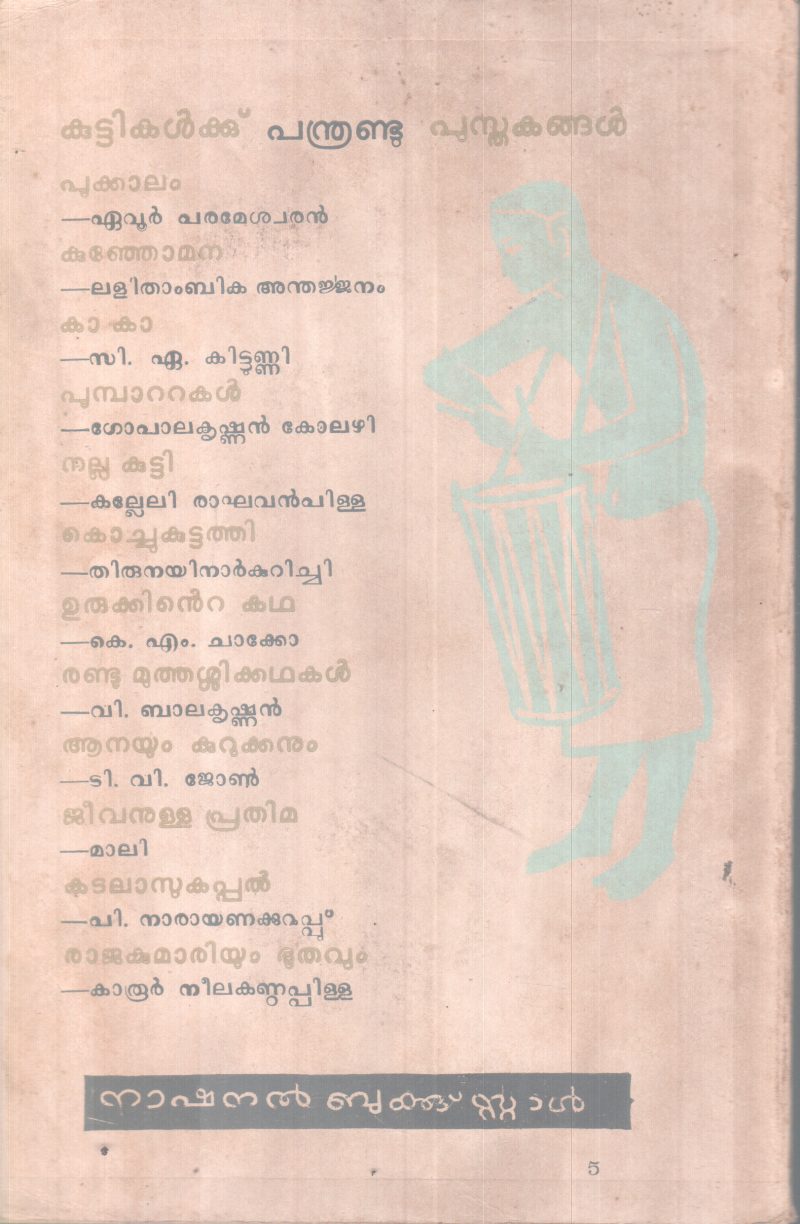 കുട്ടികൾക്കു് പന്ത്രണ്ടു പുസ്തകങ്ങൾ
പൂക്കാലം
—ഏവൂർ പരമേശ്വരൻ
കുഞ്ഞോമന
—ലളിതാംബിക അന്തജ്ജനം
കാ കാ
—സി. ഏ. കിട്ടുണ്ണി
പൂമ്പാററകൾ
—ഗോപാലകൃഷ്ണൻ കോലഴി
നല്ല കുട്ടി
—കല്ലേലി രാഘവൻപിള്ള
കൊച്ചുകുട്ടത്തി
—തിരുനയിനാർകുറിച്ചി
ഉരുക്കിൻെറ കഥ
—കെ. എം. ചാക്കോ
രണ്ടു മുത്തശ്ശിക്കഥകൾ
—വി. ബാലകൃഷ്ണൻ
ആനയും കുറുക്കനും
—ടി. വി. ജോൺ
ജീവനുള്ള പ്രതിമ
—മാലി
കടലാസുകപ്പൽ
—പി. നാരായണക്കുറുപ്പു്
രാജകുമാരിയും ഭൂതവും
—കാരൂർ നീലകണ്ഠപ്പിള്ള
നാഷനൽ ബുക്കു് സ്റ്റാൾ
5